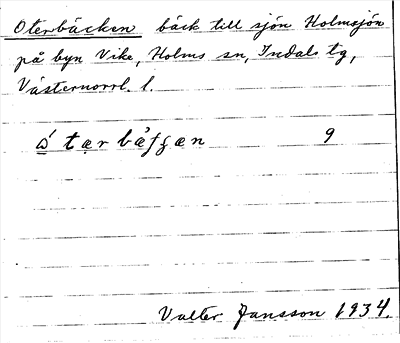 Oterbäcken bäck till sjön Holmsjön
på byn Vike, Holms sn, Indals tg,
Västernorrl. l.
9
Valter Jansson 1934.